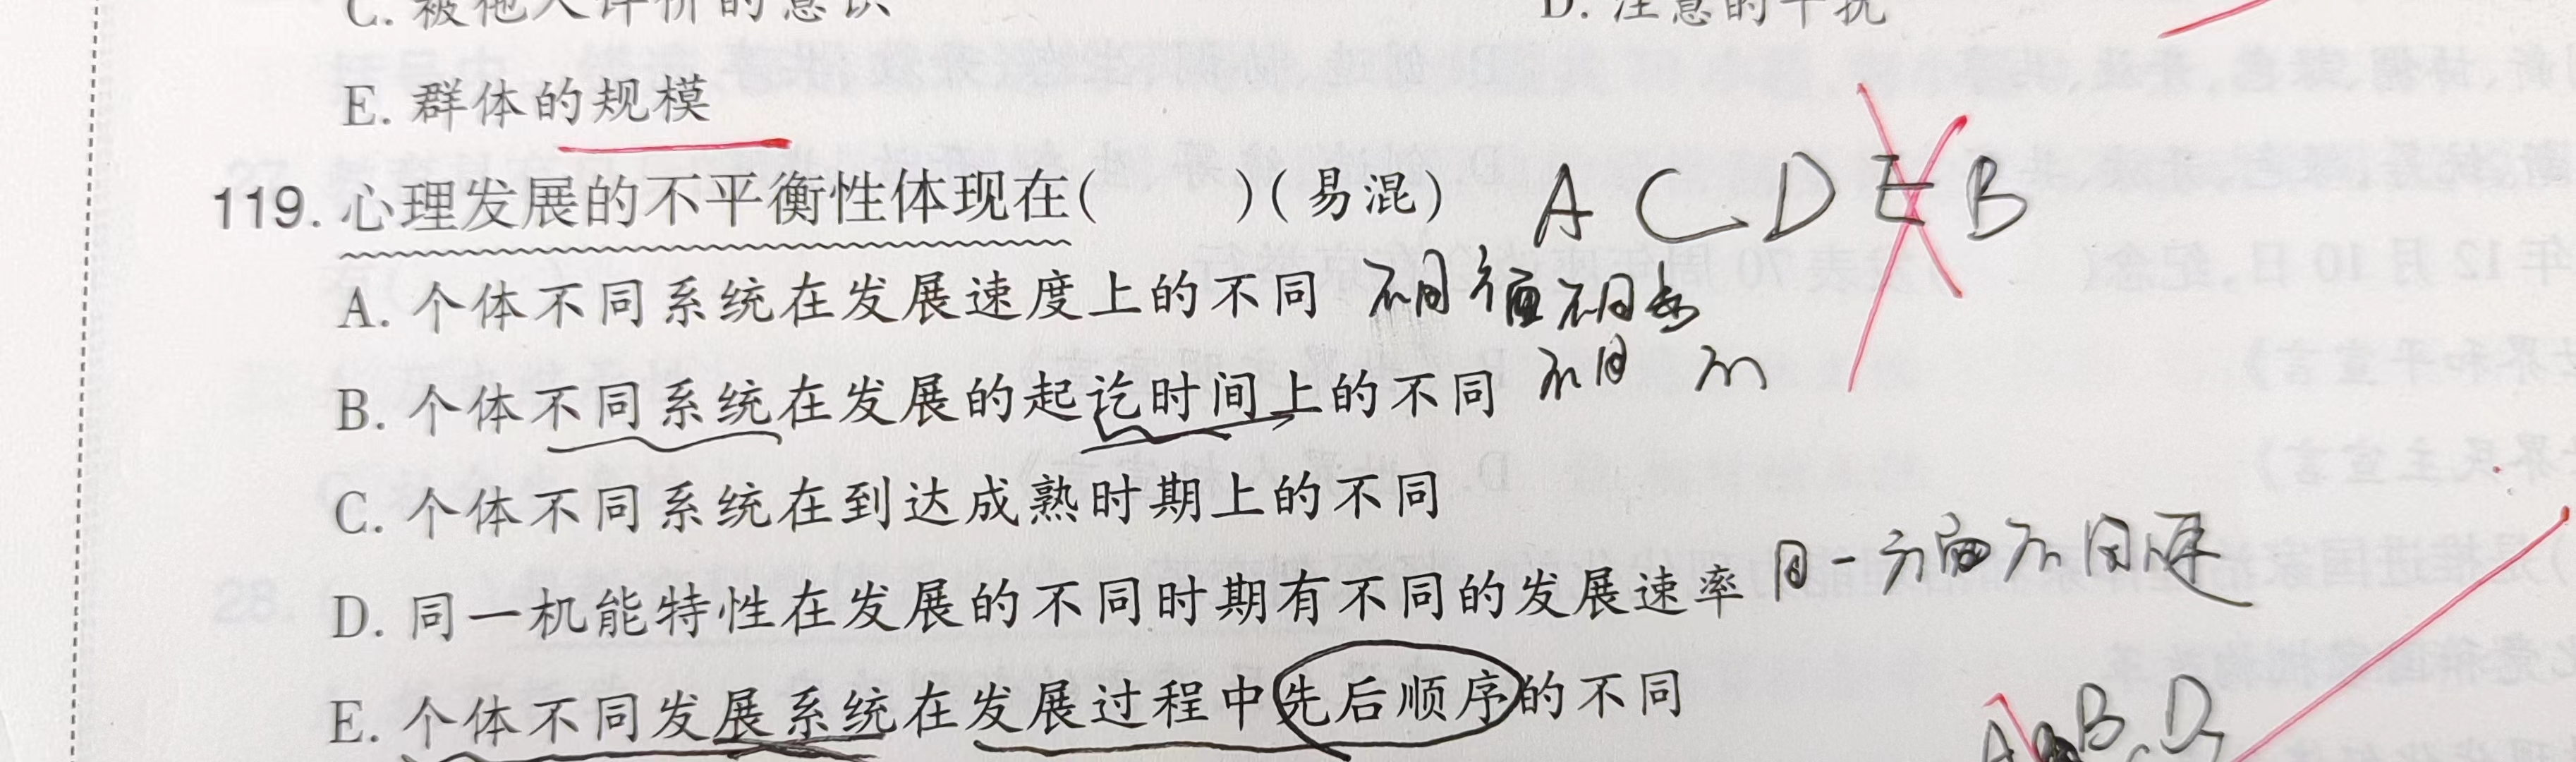 C. 被他人评价的意识
D. 注意的干扰
E. 群体的规模
119. 心理发展的不平衡性体现在(    )(易混) A C D E B
A. 个体不同系统在发展速度上的不同 不同
不同
B. 个体不同系统在发展的起讫时间上的不同
C. 个体不同系统在到达成熟时期上的不同
D. 同一机能特性在发展的不同时期有不同的发展速率 同一方面不同速
E. 个体不同发展系统在发展过程中先后顺序的不同
A B D